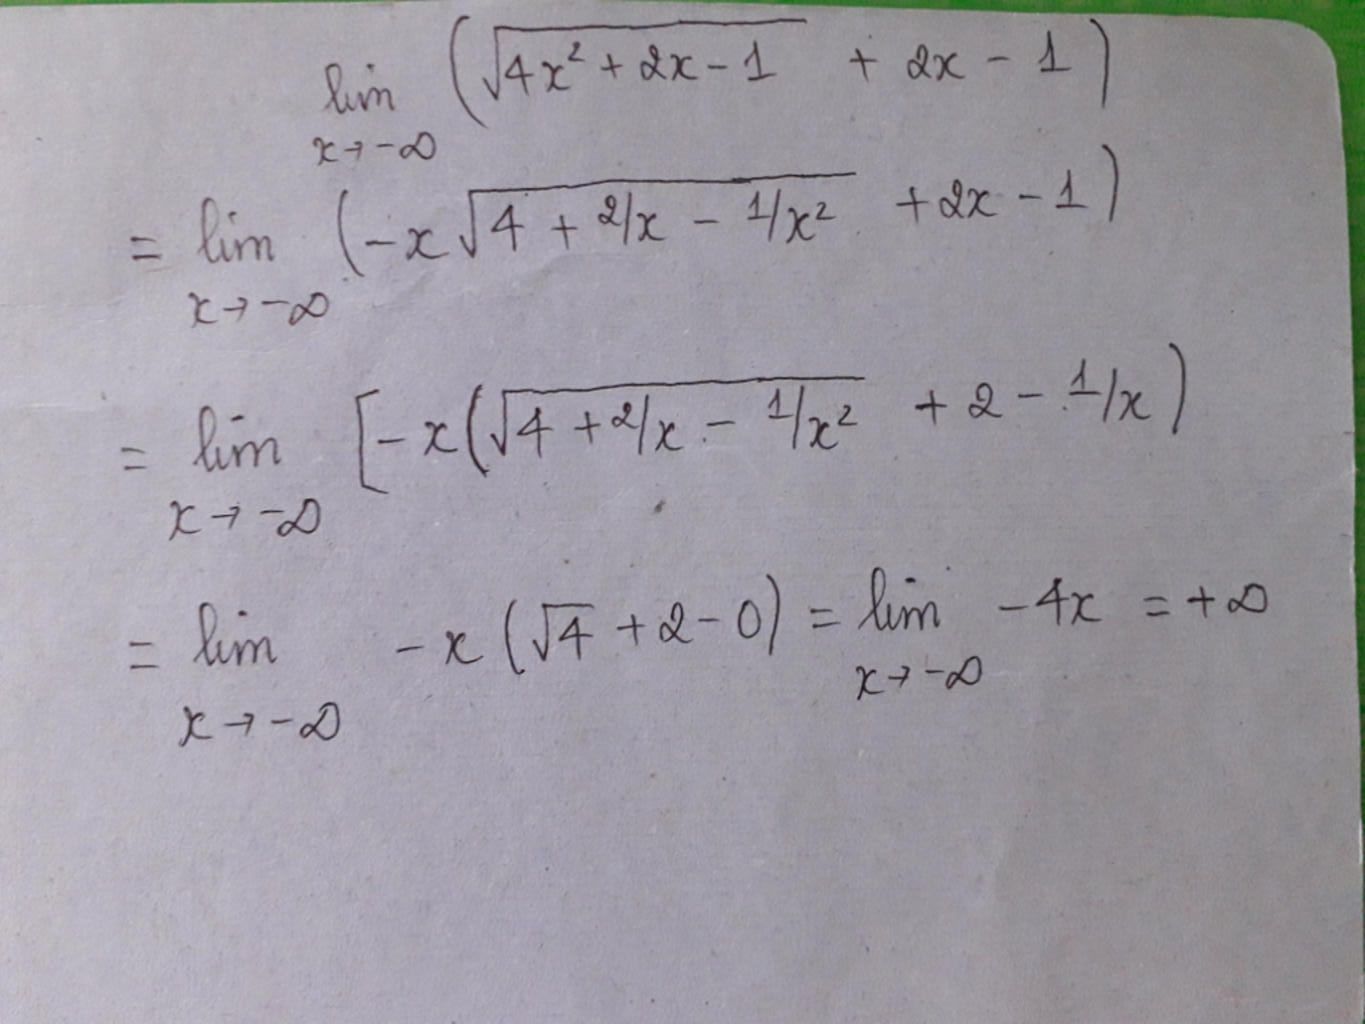 lim (√4x² + 2x - 1 + 2x - 1)
x→-∞
= lim (-x √4 + 2/x - 1/x² + 2x - 1)
x→-∞
= lim [-x(√4 + 2/x - 1/x² + 2 - 1/x)
x→-∞
= lim -x (√4 + 2 - 0) = lim -4x = +∞
x→-∞ x→-∞